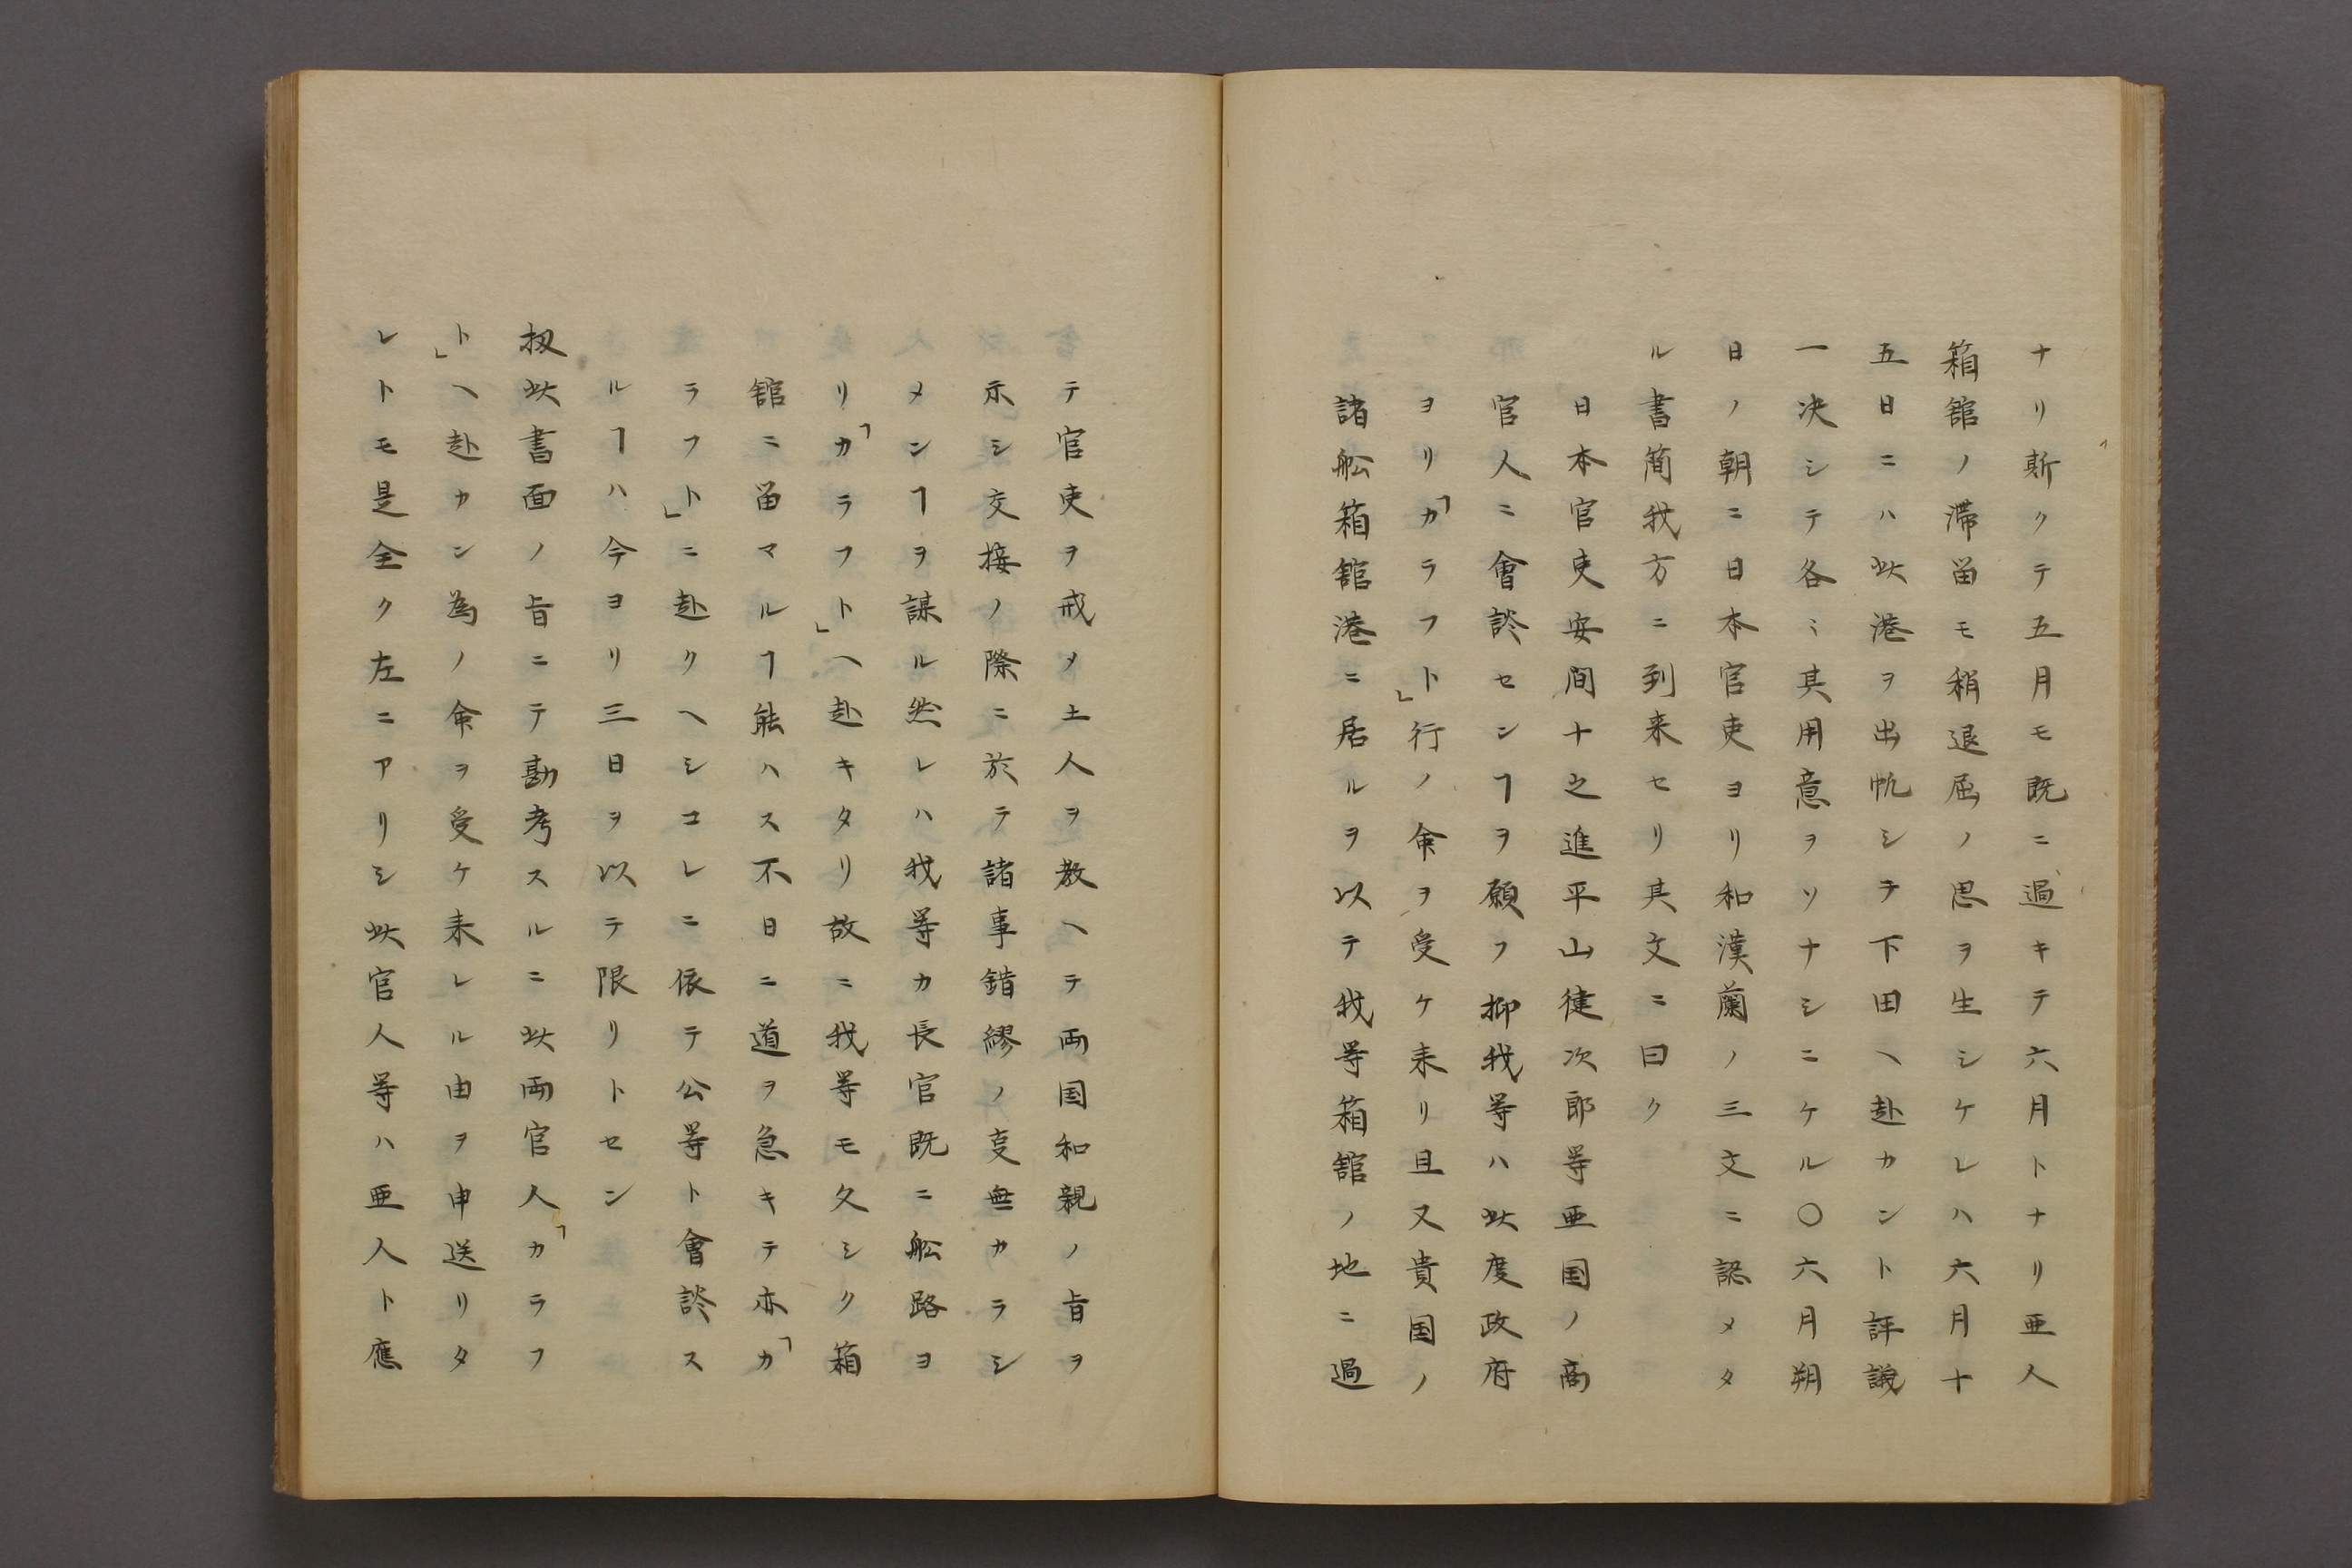 ナリ斯クテ五月モ既ニ過キテ六月トナリ亜人
箱舘ノ滞留モ稍退屈ノ思ヲ生シケレハ六月十
五日ニハ此港ヲ出帆シテ下田ヘ赴カント評議
一决シテ各〻其用意ヲソナシニケル〇六月朔
日ノ朝ニ日本官吏ヨリ和漢蘭ノ三文ニ認メタ
ル書簡我方ニ到来セリ其文ニ曰ク
日本官吏安間十之進平山徤次郎等亜国ノ商
官人ニ會談センヿヲ願フ抑我等ハ此度政府
ヨリ「カラフト」行ノ命ヲ受ケ来リ且又貴国ノ
諸舩箱舘港ニ居ルヲ以テ我等箱舘ノ地ニ過
テ官吏ヲ戒メ土人ヲ教ヘテ両国和親ノ旨ヲ
示シ交接ノ際ニ於テ諸事錯繆ノ変無カラシ
メンヿヲ謀ル然レハ我等カ長官既ニ舩路ヨ
リ「カラフト」ヘ赴キタリ故ニ我等モ久シク箱
舘ニ留マルヿ能ハス不日ニ道ヲ急キテ亦「カ
ラフト」ニ赴クヘシコレニ依テ公等ト會談ス
ルヿハ今ヨリ三日ヲ以テ限リトセン
扨此書面ノ旨ニテ勘考スルニ此両官人「カラフ
ト」ヘ赴カン為ノ命ヲ受ケ来レル由ヲ申送リタ
レトモ是全ク左ニアリシ此官人等ハ亜人ト應